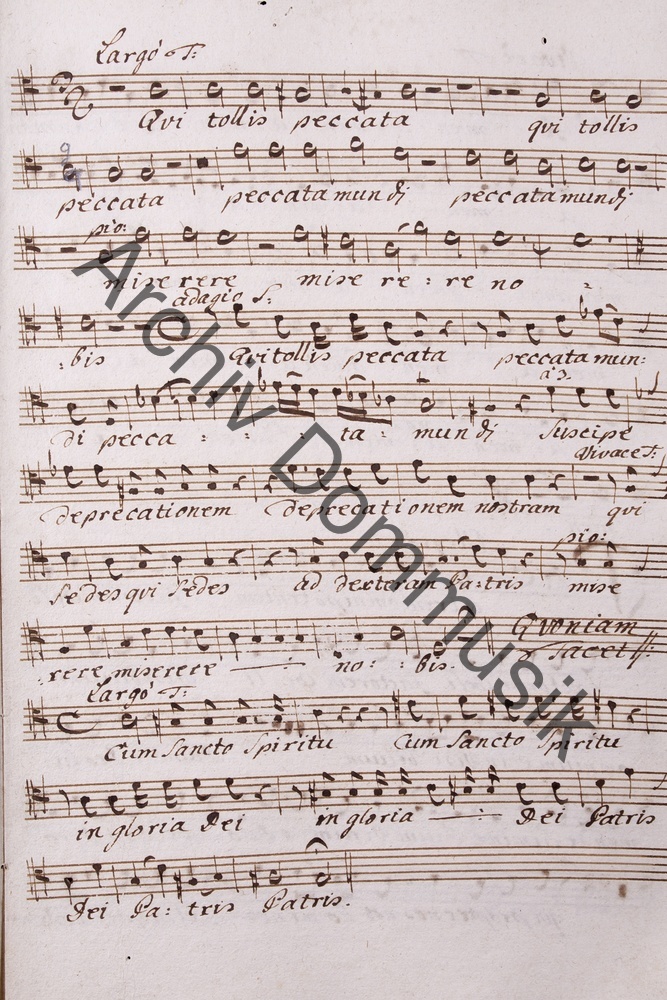 Largo T:
Qvi tollis peccata qvi tollis
peccata peccata mundi peccata mundi
pio:
miserere mise re : re no
adagio S:
: bis Qvi tollis peccata peccata mun:
a 3.
di pecca : : : ta : mundi Suscipe
Vivace T:
deprecationem deprecationem nostram qvi
pio:
Sedes qvi Sedes ad dexteram Pa: tris mise
rere miserere no : : bis. Qvoniam
Tacet
Largo T:
Cum Sancto Spiritu Cum Sancto Spiritu
in gloria Dei in gloria Dei Patris
Dei Pa: tris Patris.
Archiv Dommusik